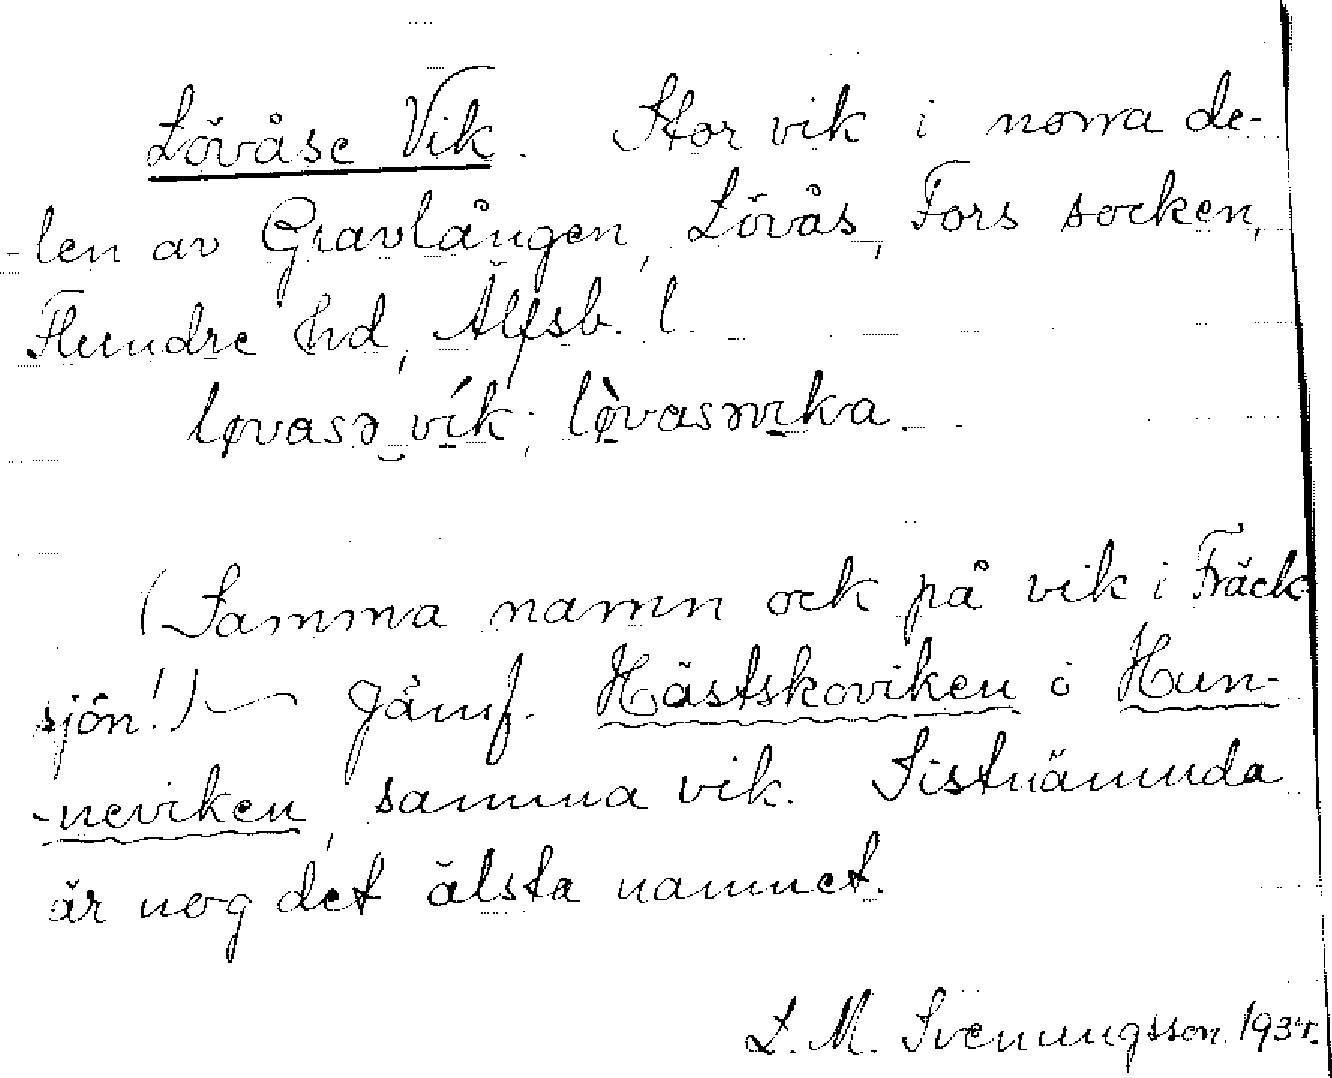 Lövåse Vik. Stor vik i norra de-
-len av Gravlången, Lövås, Fors socken,
Flundre hd, Älfsb. l.
løvasə vík; lø̀vasəvika
(Samma namn ock på vik i Fräck
sjön!) — Jämf. Hästskoviken o Hun-
-neviken, samma vik. Sistnämnda
är nog det älsta namnet.
S. M. Svenungsson